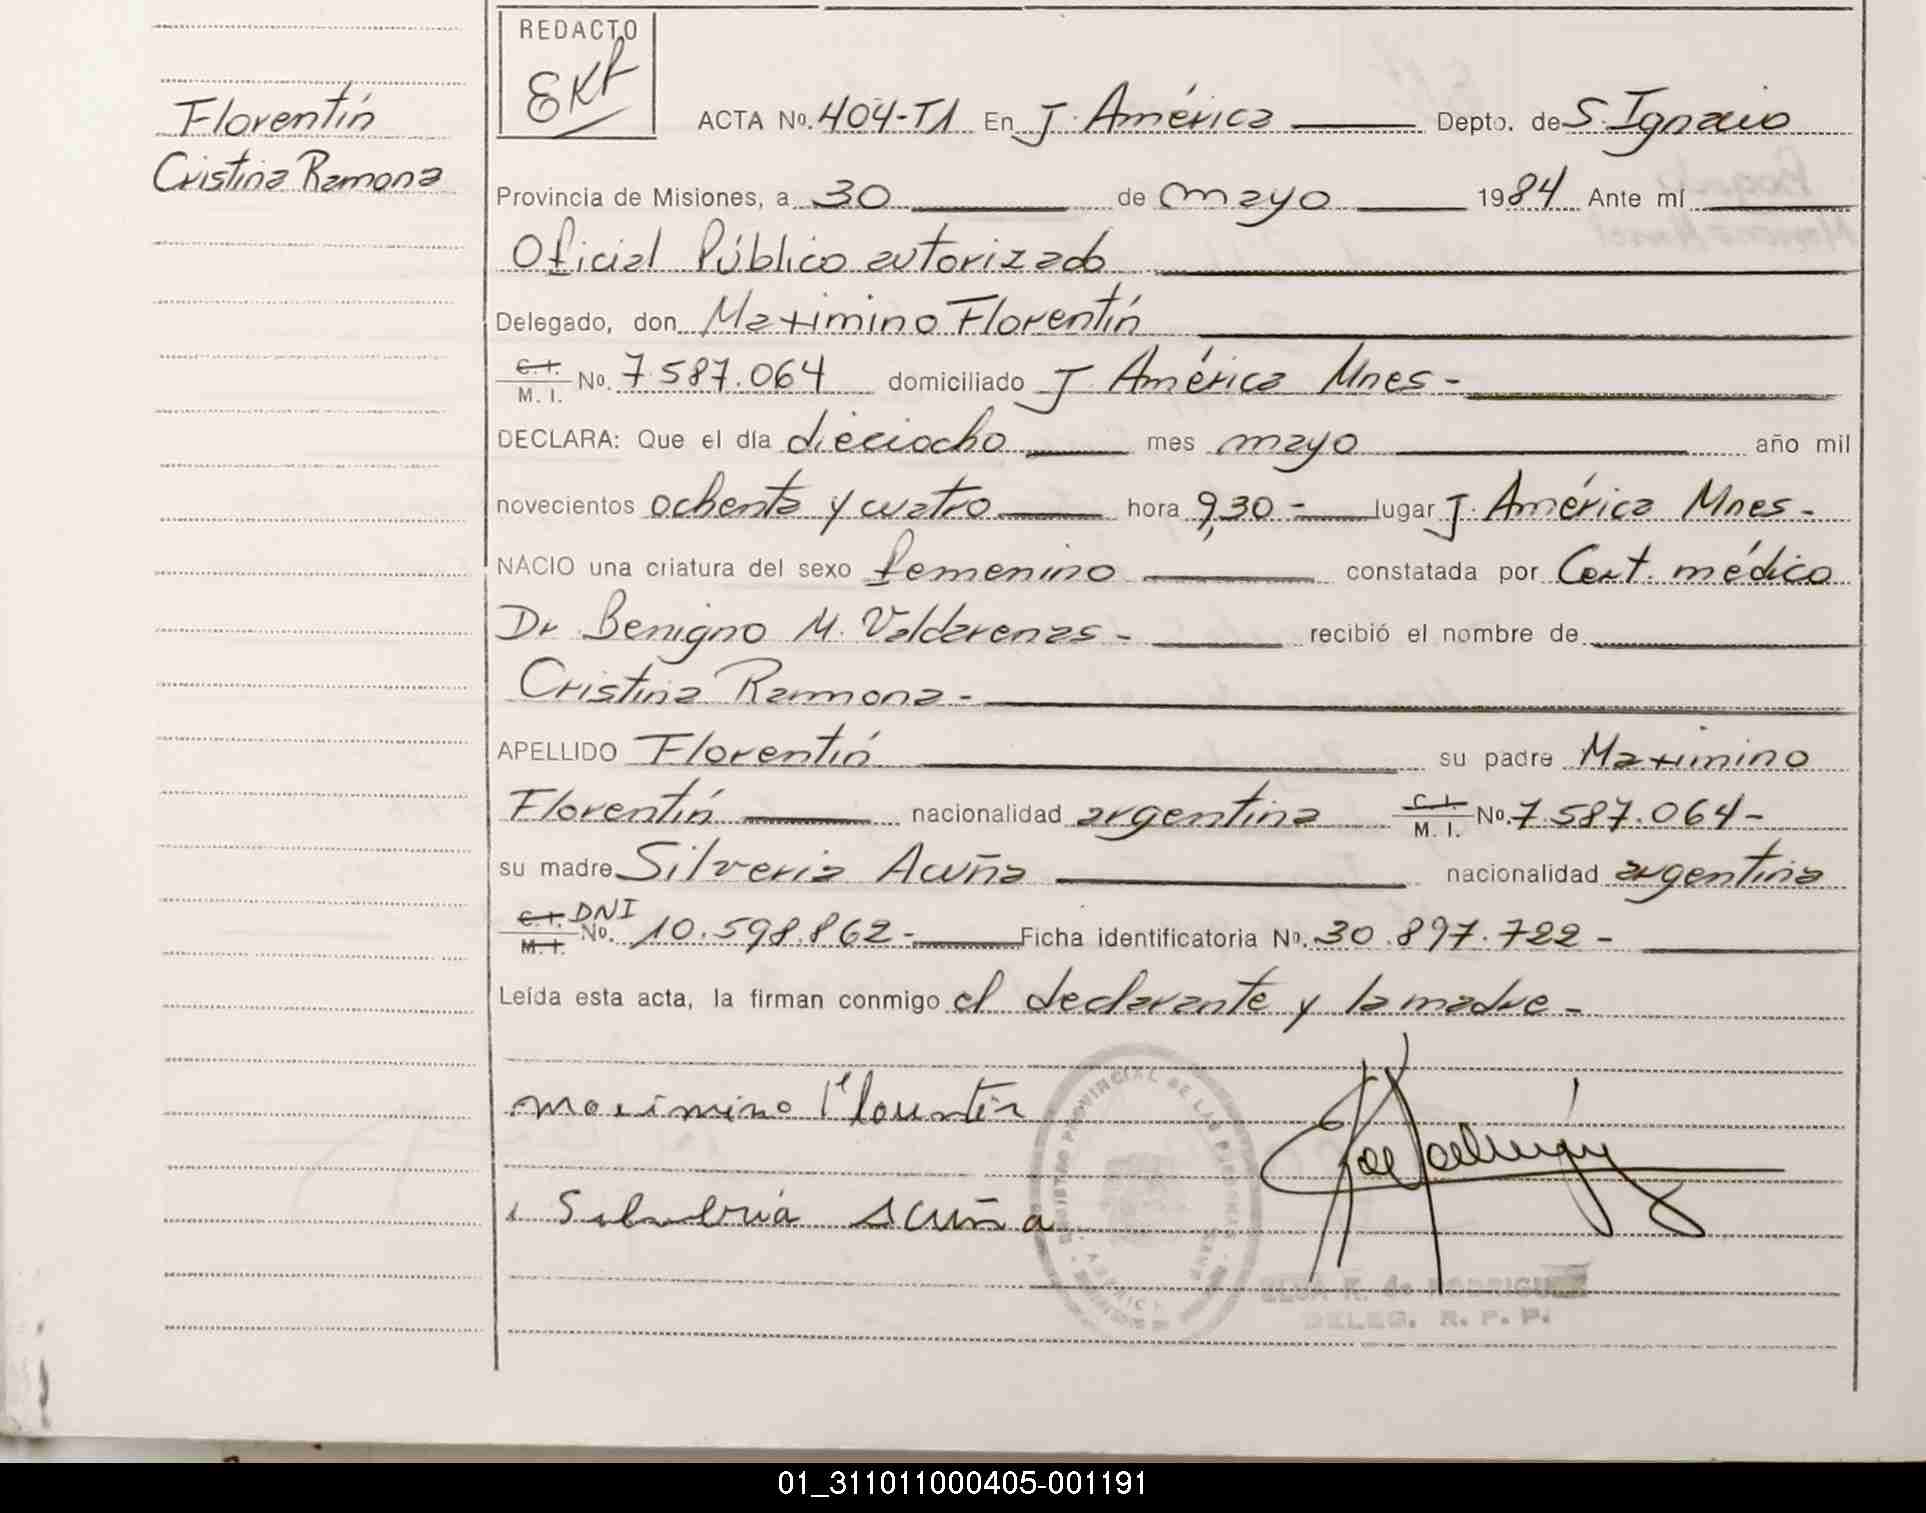 Florentín
Cristina Ramona
REDACTO
EKR
ACTA Nº. 404-T1 En J. América Depto. de S. Ignacio
Provincia de Misiones, a 30 de mayo 1984 Ante mí
Oficial Público autorizado
Delegado, don Maximino Florentín
C.I. M.I. No. 7.587.064 domiciliado J. América Mnes-
DECLARA: Que el día dieciocho mes mayo año mil
novecientos ochenta y cuatro hora 9,30- lugar J. América Mnes-
NACIO una criatura del sexo femenino constatada por Cert. médico
Dr. Benigno M. Valdarenas- recibió el nombre de
Cristina Ramona-
APELLIDO Florentín su padre Maximino
Florentín nacionalidad argentina C.I. M.I. No. 7.587.064-
su madre Silveria Acuña nacionalidad argentina
C.I. M.I. DNI No. 10.598.862- Ficha identificatoria Nº. 30.897.722-
Leída esta acta, la firman conmigo el declarante y la madre-
maximino Florentín
Silveria Acuña
REGISTRO PROVINCIAL DE LAS PERSONAS
ELSA K. de RODRIGUEZ
DELEG. R. P. P.
01_311011000405-001191